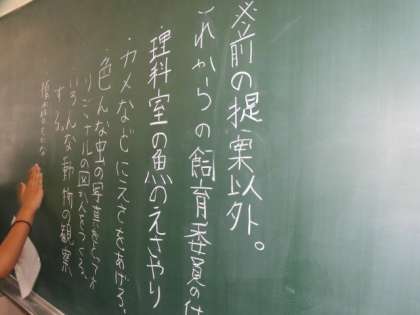 ※前の提案以外。
これからの飼育委員の仕
理科室の魚のえさやり
カメなどにえさをあげる。
色んな虫の写真をとってオ
リジナルの図かんをつくる。
いろんな動物の観察
する。